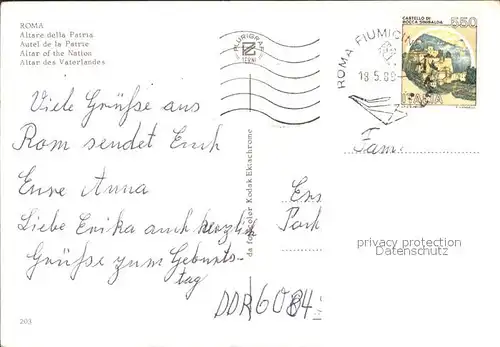 ROMA
Altare della Patria
Autel de la Patrie
Altar of the Nation
Altar des Vaterlandes
PLURIGRAF
TERNI
ROMA FIUMICIN
18.5.89
CASTELLO DI
ROCCA SINIBALDA
550
ITALIA
Viele Grüße aus
Rom sendet Euch
Eure Anna
Liebe Erika auch herzlich
Grüße zum Geburts-
tag
da fotocolor Kodak Ektachrome
Fam.
Park
privacy protection
Datenschutz
DDR 6084
203